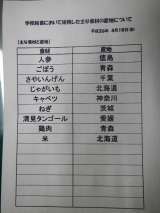 学校給食において使用した主な食材の産地について
平成26年 4月18日(金)
【主な食材と産地】
食材 産地
人参 徳島
ごぼう 青森
さやいんげん 千葉
じゃがいも 北海道
キャベツ 神奈川
ねぎ 茨城
清見タンゴール 愛媛
鶏肉 青森
米 北海道